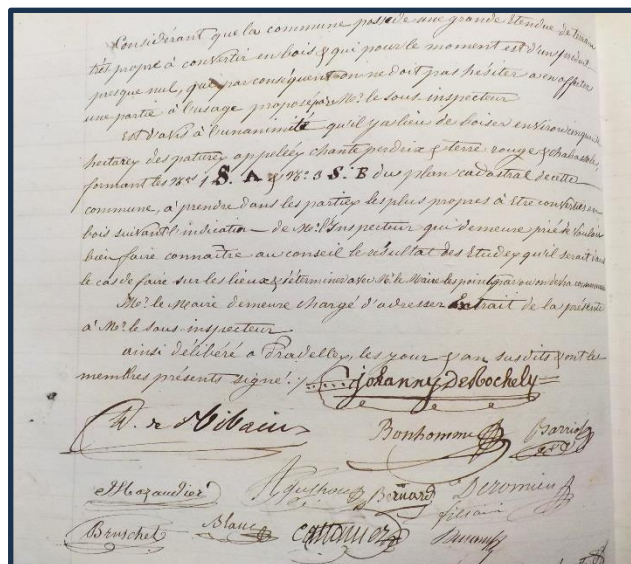 Considérant que la commune possède une grande Etendue de terrain
très propre à convertir en bois & qui pour le moment est d'un produit
presque nul, que par conséquent on ne doit pas hésiter a en affecter
une partie à l'usage proposé par Mr. le sous inspecteur
Est d'avis à l'unanimité qu'il y a lieu de boiser environ cinquante
hectares des patures appelées chante perdrix & terre rouge & chabassole,
formant les Nos 1 S. A & No 3 S. B du plan cadastral de cette
commune, à prendre dans les parties les plus propres à Etre converties en
bois suivant l'indication de Mr. l'Inspecteur qui demeure prié de vouloir
bien faire connaître au conseil le résultat des Etudes qu'il serait dans
le cas de faire sur les lieux & déterminer avec Mr. le Maire les points par ou on devra commencer
Mr. le Maire demeure chargé d'adresser Extrait de la présente
à Mr. le sous inspecteur
ainsi délibéré a Pradelles, les jour & an susdits & ont les
membres présents signé ./.
Johanny DeRochely
Bonhomme Barriol
Mazaudier Bernard Deromieu
Bruschet Blanc filiain